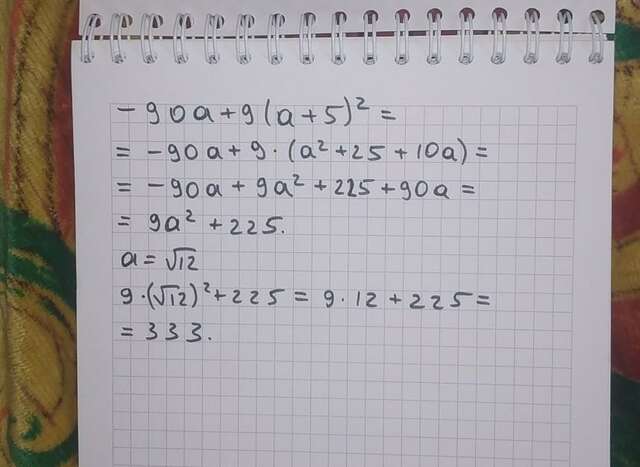 - 90a + 9(a + 5)² =
= - 90a + 9 · (a² + 25 + 10a) =
= - 90a + 9a² + 225 + 90a =
= 9a² + 225.
a = √12
9 · (√12)² + 225 = 9 · 12 + 225 =
= 333.